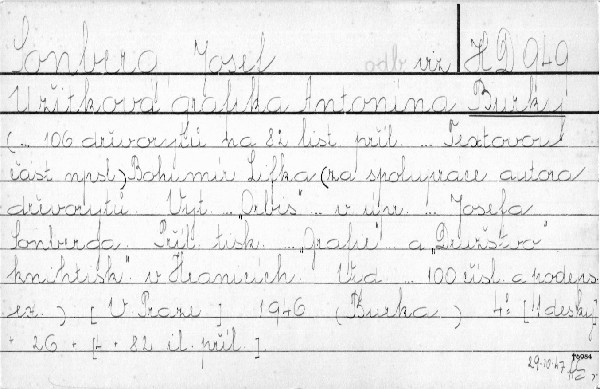 Sonberg Josef odb. viz HD 949
Užitková grafika Antonína Burky
( ... 106 dřevorytů na 82 list. příl. ... Textovou
část npsl.) Bohumír Lifka (za spolupráce autora
dřevorytů. Vyt. ... "Orbis" ... v úpr. ... Josefa
Sonberga. Příl. tisk. ... "Grafie" a "Družstvo
knihtisk." v Hranicích. Vyd. ... 100 čísl. a podeps.
ex.) [V Praze] 1946 (Burka.) 4° [4 desky]
+ 26 + [ + 82 il. příl.]
29.10.47